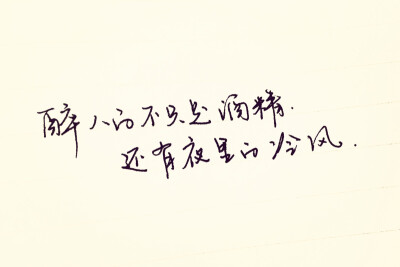 醉人的不只是酒精.
还有夜里的冷风.